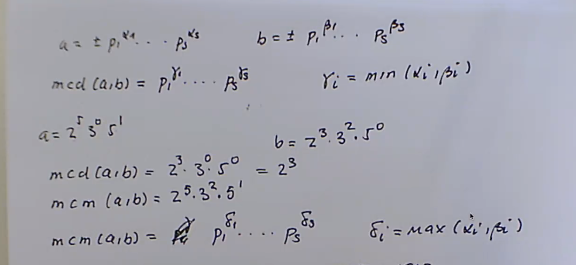 a = ± p₁^α₁ · · · pₛ^αₛ b = ± p₁^β₁ · · · pₛ^βₛ
mcd (a,b) = p₁^γ₁ · · · · pₛ^γₛ γᵢ = min (αᵢ, βᵢ)
a = 2⁵ 3⁰ 5¹ b = 2³ · 3² · 5⁰
mcd (a,b) = 2³ · 3⁰ · 5⁰ = 2³
mcm (a,b) = 2⁵ · 3² · 5¹
mcm (a,b) = p₁^δ₁ · · · · pₛ^δₛ δᵢ = max (αᵢ, βᵢ)